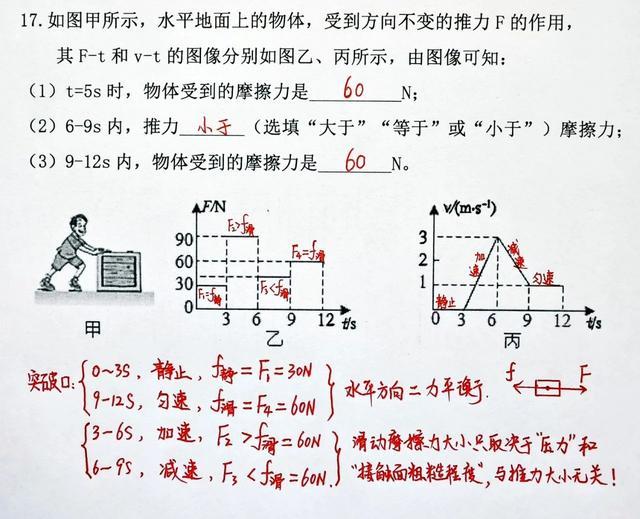 17.如图甲所示，水平地面上的物体，受到方向不变的推力F的作用，
其F-t和v-t的图像分别如图乙、丙所示，由图像可知：
（1）t=5s时，物体受到的摩擦力是60N；
（2）6-9s内，推力小于（选填“大于”“等于”或“小于”）摩擦力；
（3）9-12s内，物体受到的摩擦力是60N。
F/N
90
60
30
0
3 6 9 12 t/s
F₁=f静
F₂>f滑
F₃<f滑
F₄=f滑
v/(m·s⁻¹)
3
2
1
0
3 6 9 12 t/s
静止
加速
减速
匀速
甲
乙
丙
突破口:
0~3S，静止，f静=F₁=30N
9-12S，匀速，f滑=F₄=60N
水平方向二力平衡.
f F
3-6S，加速，F₂>f滑=60N
6-9S，减速，F₃<f滑=60N.
滑动摩擦力大小只取决于“压力”和
“接触面粗糙程度”,与推力大小无关!